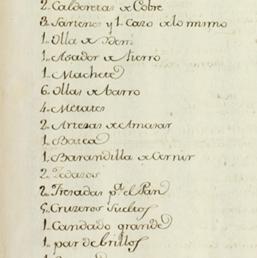 2. Calderetas de Cobre
3. Sartenes y 1. Cazo de lo mismo
1. Olla de Idem
1. Asador de hierro
1. Machete
6. Ollas de barro
4. Metates
2. Artesas de Amasar
1. Batea
1. Barandilla de Cernir
2. Zedazos
2. Frezadas pª el Pan
5. Cruzeros sueltos
1. Candado grande
1. par de Grillos